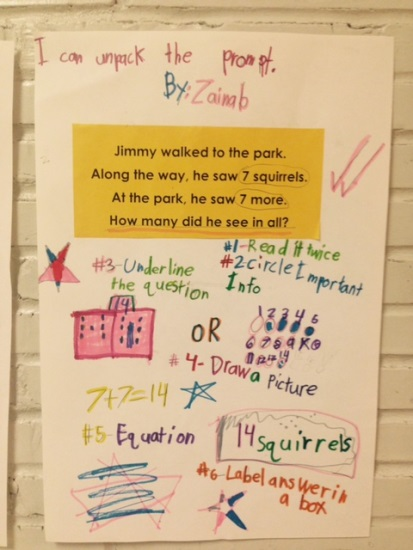 I can unpack the prompt.
By: Zainab
Jimmy walked to the park.
Along the way, he saw 7 squirrels.
At the park, he saw 7 more.
How many did he see in all?
#1-Read it twice
#2 circle Important
Info
#3-Underline
the question
14
OR
1 2 3 4 5
6 7 8 9 10
11 12 13 14
#4-Draw a Picture
7+7=14
#5-Equation
14 squirrels
#6-Label answer in
a box